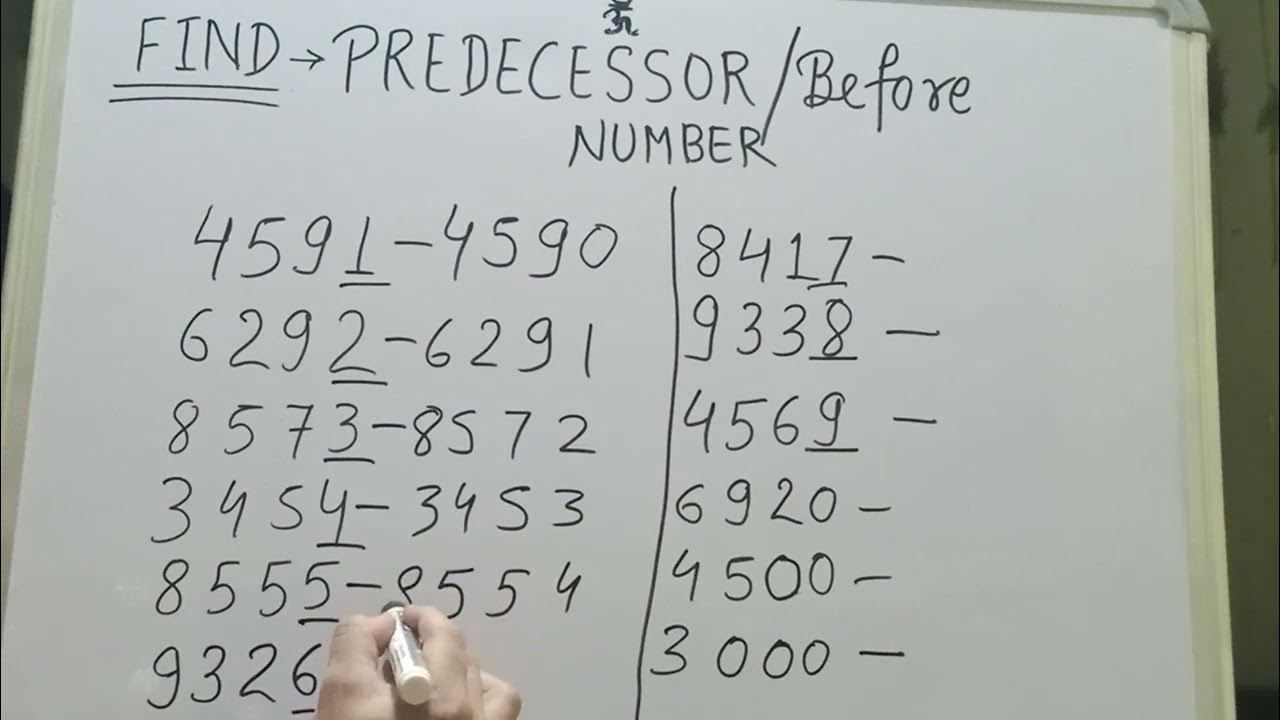 ॐ
FIND → PREDECESSOR / Before
NUMBER
4591 - 4590
6292 - 6291
8573 - 8572
3454 - 3453
8555 - 8554
9326
8417 -
9338 -
4569 -
6920 -
4500 -
3000 -